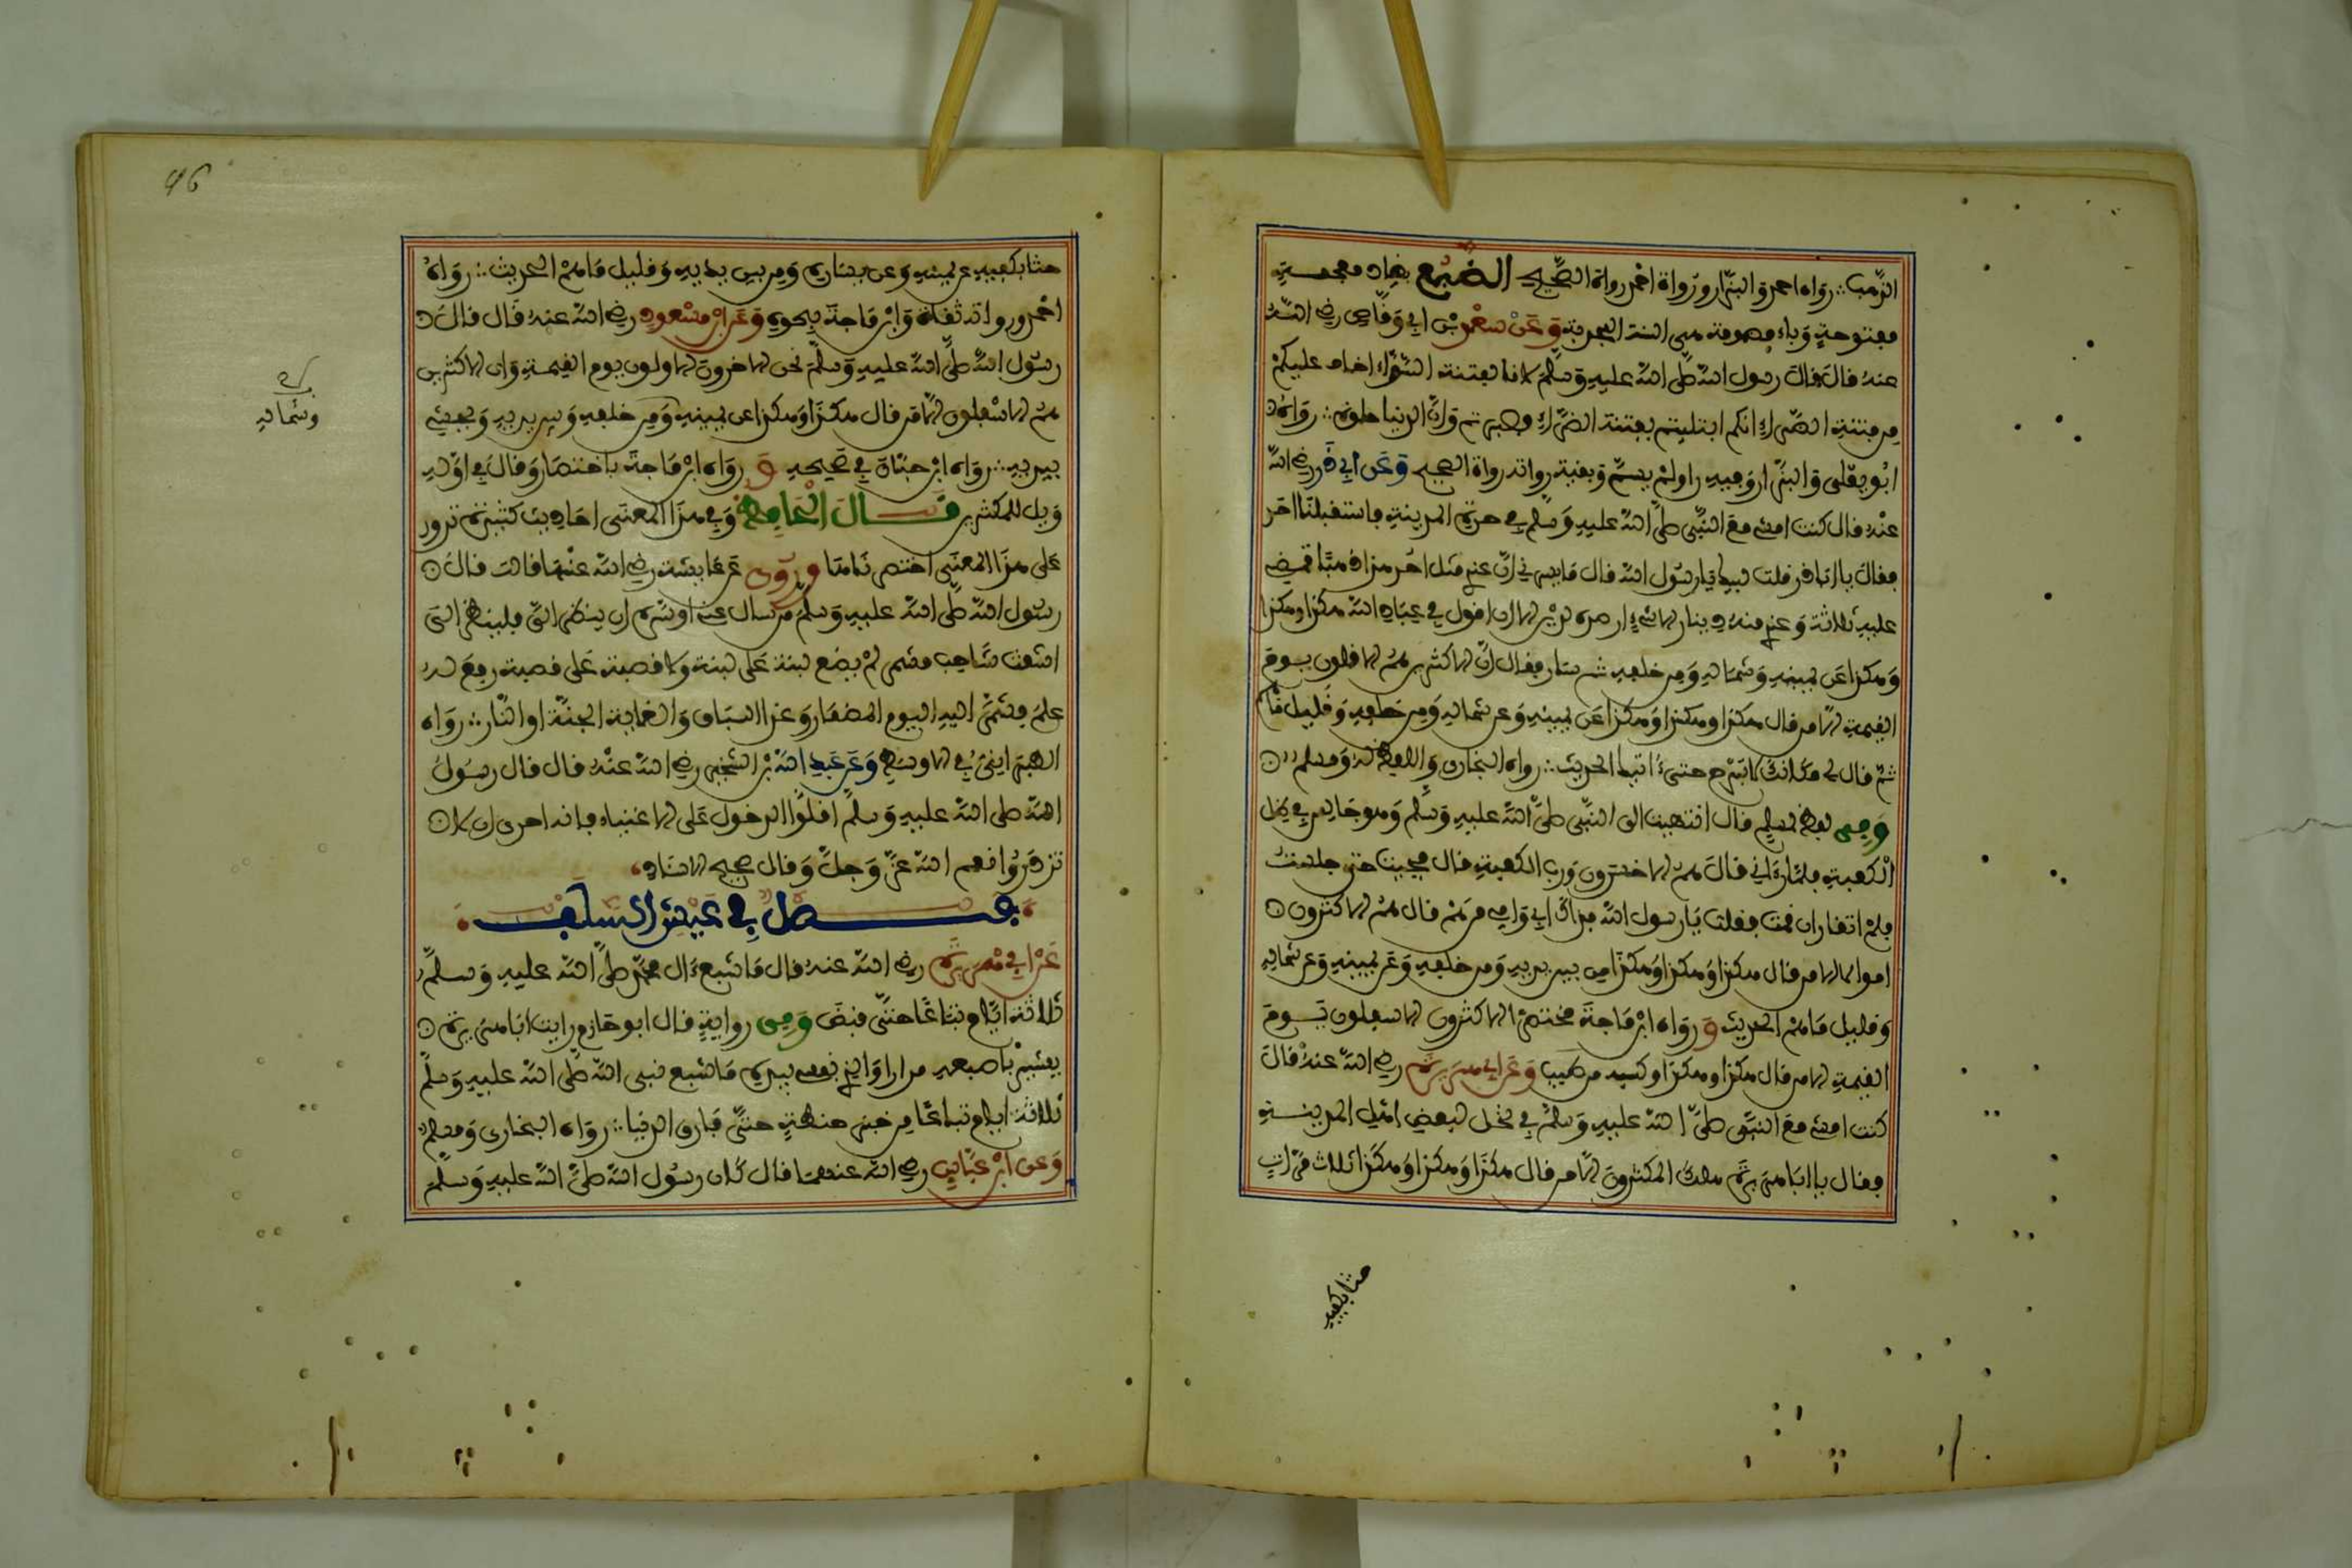 الذهب ∴ رواه احمد والبزار ورواة احمد رواة الصحيح الضبع بضاد معجمة
مفتوحة وباء مضمومة هي السنة المجدبة وعن سعد بن ابي وقاص رضي الله
عنه قال قال رسول الله صلى الله عليه وسلم لانا لفتنة السراء اخاف عليكم
من فتنة الضراء انكم ابتليتم بفتنة الضراء فصبرتم وان الدنيا حلوة ∴ رواه
ابو يعلى والبزار وفيه راو لم يسم وبقية رواته رواة الصحيح وعن ابي ذر رضي الله
عنه قال كنت امشي مع النبي صلى الله عليه وسلم في حرة المدينة فاستقبلنا احد
فقال يا ابا ذر قلت لبيك يا رسول الله قال ما يسرني ان عندي مثل احد هذا ذهبا تمضي
عليه ثلاثة وعندي منه دينار الا شيء ارصده لدين الا ان اقول في عباد الله هكذا وهكذا
وهكذا عن يمينه وشماله ومن خلفه ثم سار فقال ان الاكثرين هم الاقلون يوم
القيمة الا من قال هكذا وهكذا وهكذا عن يمينه وعن شماله ومن خلفه وقليل ما هم
ثم قال لي مكانك لا تبرح حتى ءاتيك الحديث ∴ رواه البخاري واللفظ له ومسلم
وفي لفظ لمسلم قال انتهيت الى النبي صلى الله عليه وسلم وهو جالس في ظل
الكعبة فلما رءاني قال هم الاخسرون ورب الكعبة قال فجيت حتى جلست
فلم اتقار ان قمت فقلت يا رسول الله فداك ابي وامي من هم قال هم الاكثرون
اموالا الا من قال هكذا وهكذا وهكذا من بين يديه ومن خلفه وعن يمينه وعن شماله
وقليل ما هم الحديث ورواه ابن ماجة مختصرا الاكثرون الاسفلون يوم
القيمة الا من قال هكذا وهكذا وكسبه من طيب وعن ابي هريرة رضي الله عنه قال
كنت امشي مع النبي صلى الله عليه وسلم في نخل لبعض اهل المدينة
فقال يا ابا هريرة هلك المكثرون الا من قال هكذا وهكذا وهكذا ثلاث مرات
حثا بكفيه
46
حثا بكفيه عن يمينه وعن يساره ومن بين يديه وقليل ما هم الحديث ∴ رواه
احمد ورواته ثقات وابن ماجة بنحوه وعن ابن مسعود رضي الله عنه قال قال
رسول الله صلى الله عليه وسلم نحن الاخرون الاولون يوم القيمة وان الاكثرين
هم الاسفلون الا من قال هكذا وهكذا عن يمينه ومن خلفه وبين يديه ويحثي
بيديه ∴ رواه ابن حبان في صحيحه ورواه ابن ماجة باختصار وقال في اوله
ويل للمكثرين قال الحافظ وفي هذا المعنى احاديث كثيرة تدور
على هذا المعنى اختصرناها وروي عن عايشة رضي الله عنها قالت قال
رسول الله صلى الله عليه وسلم من سال عني او سره ان ينظر الي فلينظر الى
اشعث شاحب مشمر لم يضع لبنة على لبنة ولا قصبة على قصبة رفع له
علم فشمر اليه اليوم المضمار وغدا السباق والغاية الجنة او النار ∴ رواه
الطبراني في الاوسط وعن عبد الله بن الشخير رضي الله عنه قال قال رسول
الله صلى الله عليه وسلم اقلوا الدخول على الاغنياء فانه احرى ان لا
تزدروا نعم الله عز وجل وقال صحيح الاسناد
فصل في عيش السلف
عن ابي هريرة رضي الله عنه قال ما شبع ءال محمد صلى الله عليه وسلم
ثلاثة ايام تباعا حتى قبض وفي رواية قال ابو حازم رايت ابا هريرة
يشير باصبعه مرارا والذي نفسي بيده ما شبع نبي الله صلى الله عليه وسلم
ثلاثة ايام تباعا من خبز حنطة حتى فارق الدنيا ∴ رواه البخاري ومسلم
وعن ابن عباس رضي الله عنهما قال كان رسول الله صلى الله عليه وسلم
وشماله